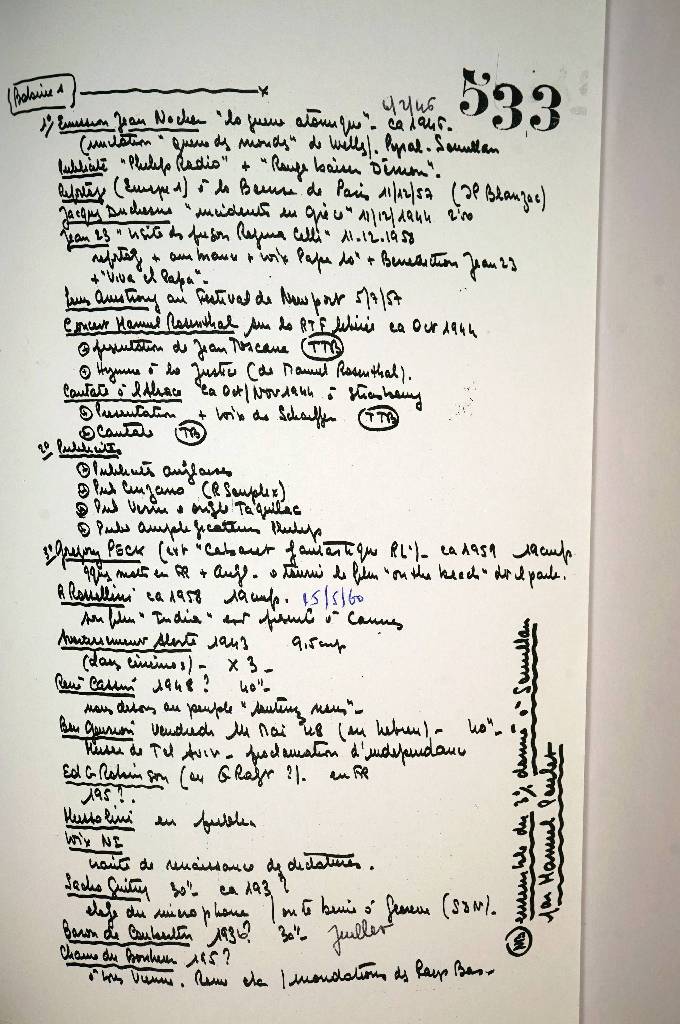 533
4/2/46
1° Emission Jean Nocher "la guerre atomique" - ca 1946 -
(imitation "guerre des mondes" de Wells) - Pyral - Soumillan
Publicité "Philips Radio" + "Rouge baiser Démon".
Reportage (Europe 1) à la Bourse de Paris 11/12/57 (JP Blanzac)
Jacques Duchesne "incidents en Grèce" 11/12/1944
Jean 23 "visite des prison Regina Celli" 11-12-1958
reportage + voix Pape + Benediction Jean 23
+ "Viva el Papa" -
Armstrong au Festival de Newport 5/7/57
Concert Manuel Rosenthal sur la RTF libérée ca Oct 1944
presentation de Jean Toscane TTB
Hymne à la Justice (de Manuel Rosenthal).
Cantate à l'Alsace ca Oct/Nov 1944 à Strasbourg
Presentation + voix de Schaeffer TTB
Cantate TB
2° Publicités
Publicités anglaises
Pub Cinzano (R Souplex)
Pub Vernis à ongle Taquilac
Pubs amplificateurs Philips
3° Gregory PECK (ext "Cabaret fantastique RL") - ca 1959 19cmps
qqes mots en FR + Angl. a tourné le film "on the beach" dt il parle.
R Rossellini ca 1958 19cmps. 15/5/60
son film "India" est présenté à Cannes
1943 9,5cmps
(dans cinémas) - x 3 -
René Cassin 1948? 40"-
nous devons au peuple
Ben Gourion Vendredi 14 Mai 48 (en hebreu) - 40"-
Musée de Tel Aviv - proclamation d'independance
Ed G Robinson (au G Rafr ?). en FR
195?.
Mussolini en public
Voix NI
traite de renaissance des dictatures.
Sacha Guitry 30"- ca 193?
éloge du microphone / à Geneve (SDN).
Baron de Coubertin 1936? 30"- Juillet
Chaine du Bonheur 195?
Vienne. / Inondations des Pays Bas -
MB ensemble du 3° donné à Soumillan
par Manuel Poulet